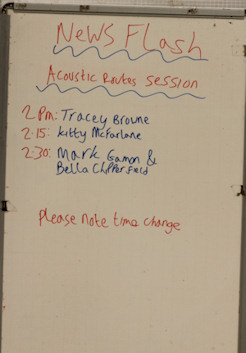 NEWS FLASH
Acoustic Routes SESSION
2 Pm: Tracey Browne
2.15: Kitty McFarlane
2.30: Mark Gamon &
Bella Chipperfield
Please note time change